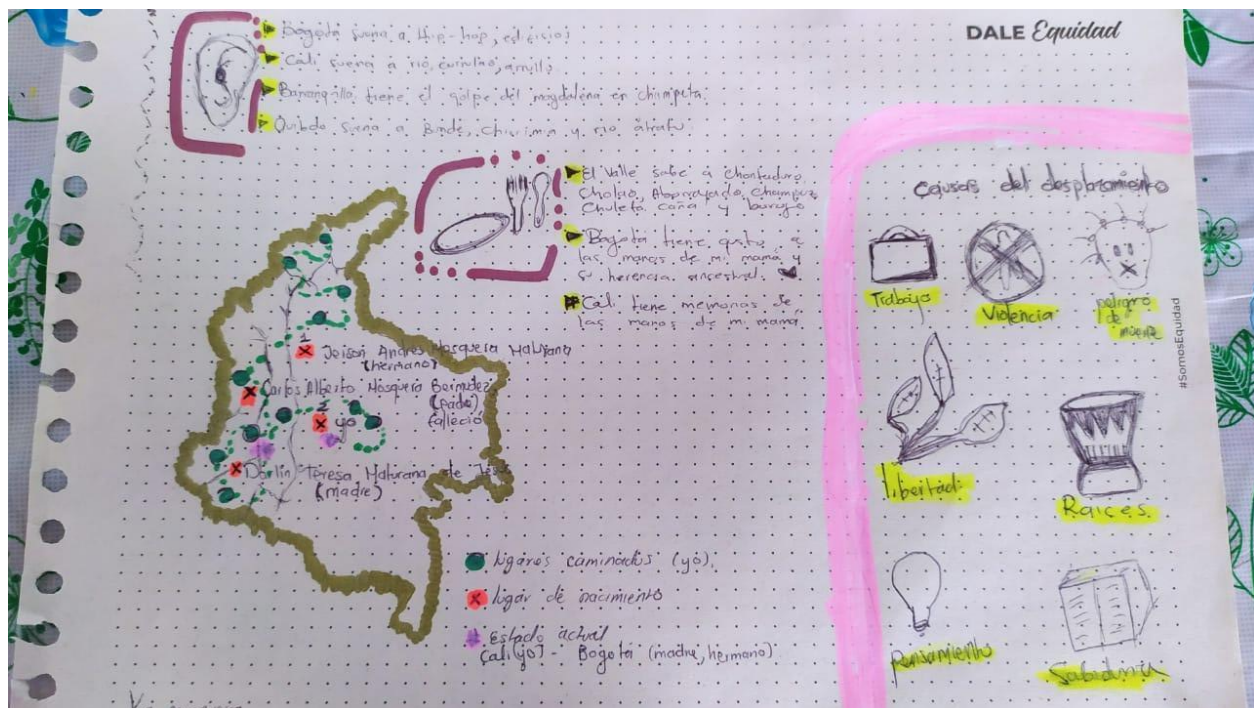 Bogotá suena a Hip-hop, edificios
Cali suena a río, currulao,
Barranquilla tiene el golpe del magdalena en champeta.
Quibdo suena a Bunde, chirimia y rio atrato
DALE Equidad
El Valle sabe a Chontaduro
Cholao, Aborrajado, Champuz
Chuleta caña y borojo
Bogotá tiene gusto a
las manos de mi mamá y
su herencia ancestral.
Cali tiene memorias de
las manos de mi mamá
1
Jeison Andrés Mosquera Maturana
(hermano)
Carlos Alberto Mosquera Bermudez
(padre)
falleció
2
yo
Darlin Teresa Maturana de Jesús
(madre)
lugares caminados (yo).
lugar de nacimiento
Estado actual
Cali (yo) - Bogotá (madre, hermano)
Causas del desplazamiento
Trabajo
Violencia
peligro
de
muerte
libertad
Raices
pensamiento
Sabiduria
#SomosEquidad